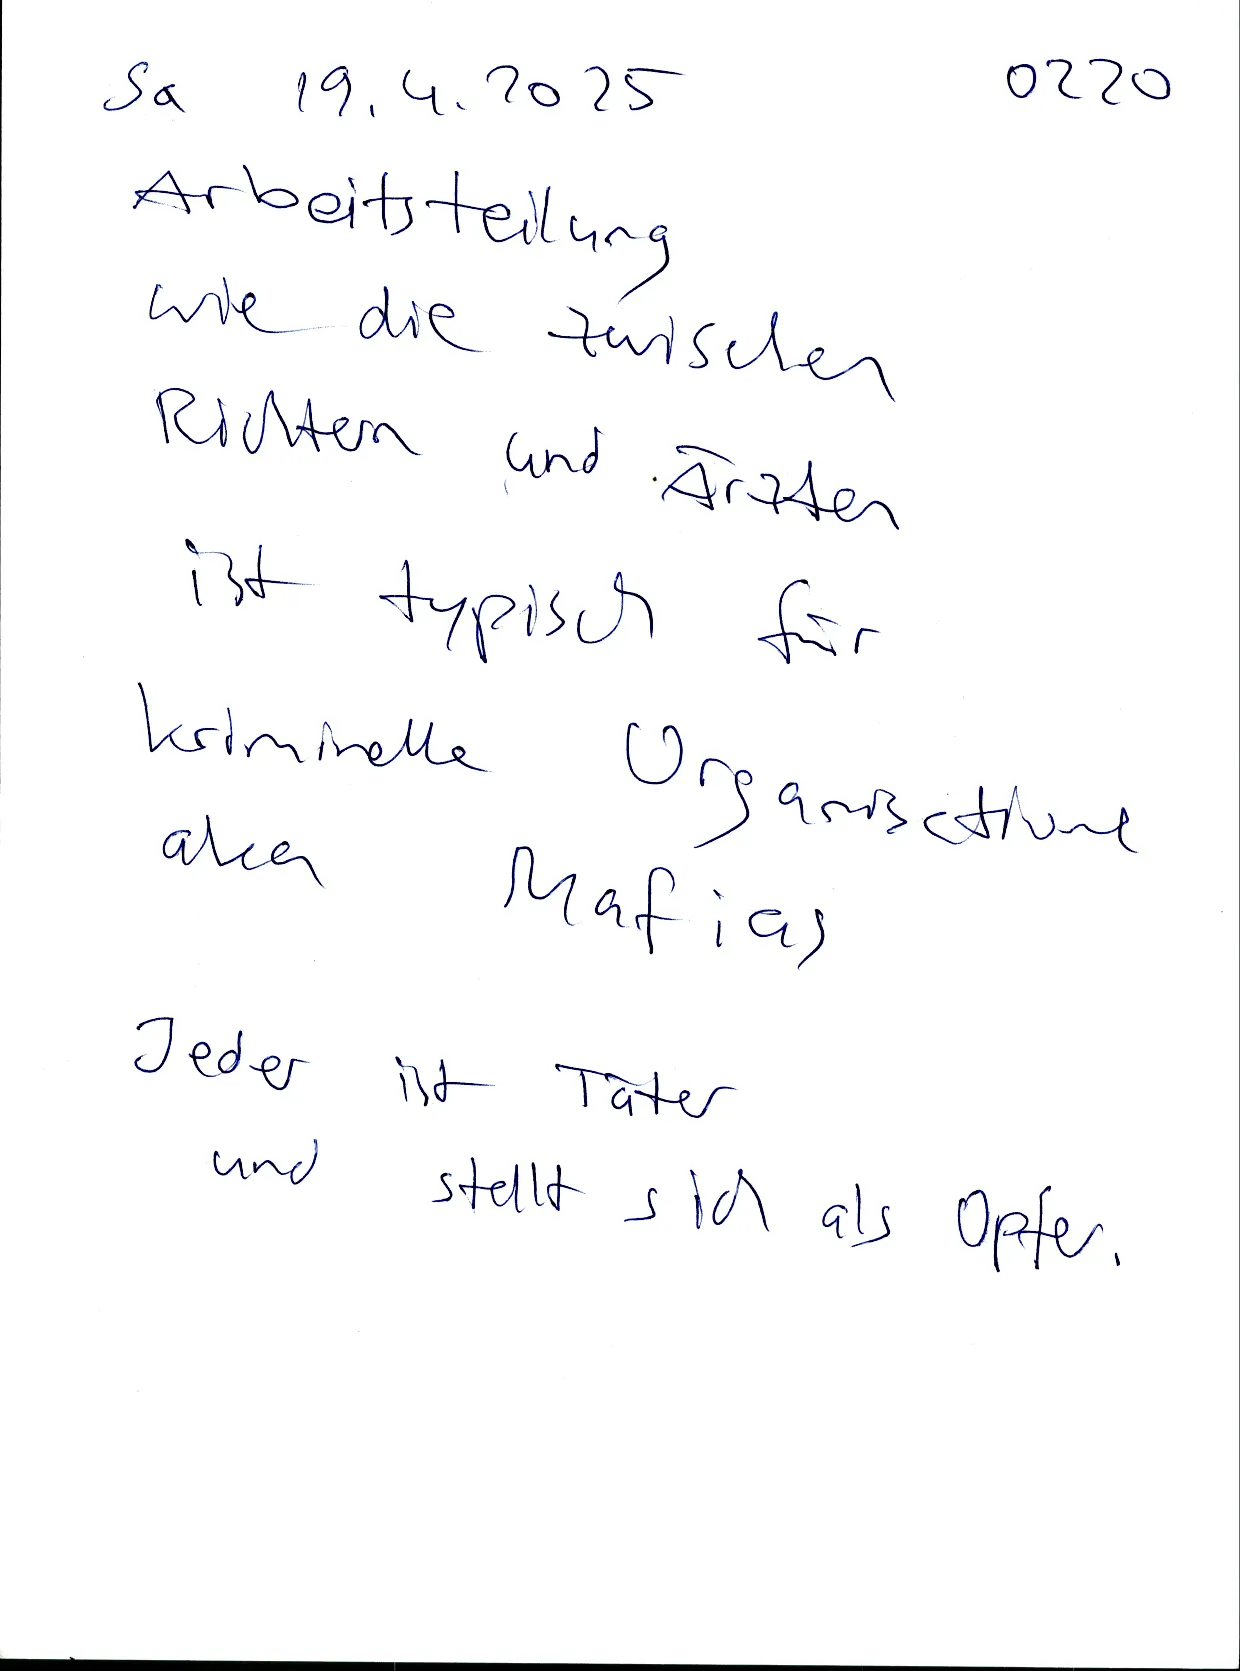 Sa 19.4.2025 0220
Arbeitsteilung
wie die zwischen
Richtern und Ärzten
ist typisch für
kriminelle Organisationen
aka Mafias
Jeder ist Täter
und stellt sich als Opfer.